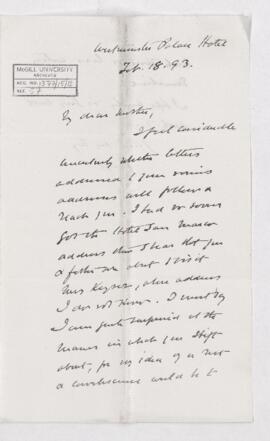 Westminster Palace Hotel
Feb. 18. 93.
McGILL UNIVERSITY
ARCHIVES
ACC. NO.
REF. 57
My dear Mother,
I feel considerable
uncertainty whether letters
addressed to your various
addresses will follow &
reach you. I had no sooner
got the Hotel San Marco
address than I hear that you
& father are about to visit
Mrs Keyser, whose address
I do not know. I must say
I am quite surprised at the
manner in which you shift
about, for my idea of a
a convalescence would be to